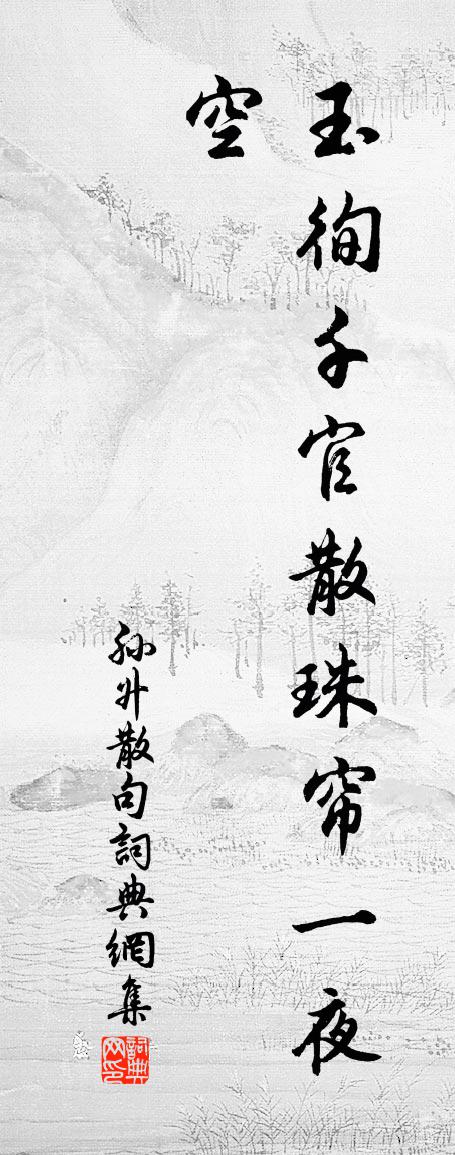 玉徇千官散珠帘一夜
空
孙升散句詞典網集
詞典网印